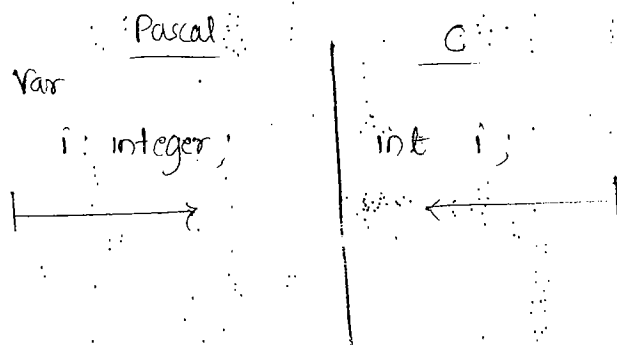 Pascal
Var
i: integer;
C
int i;